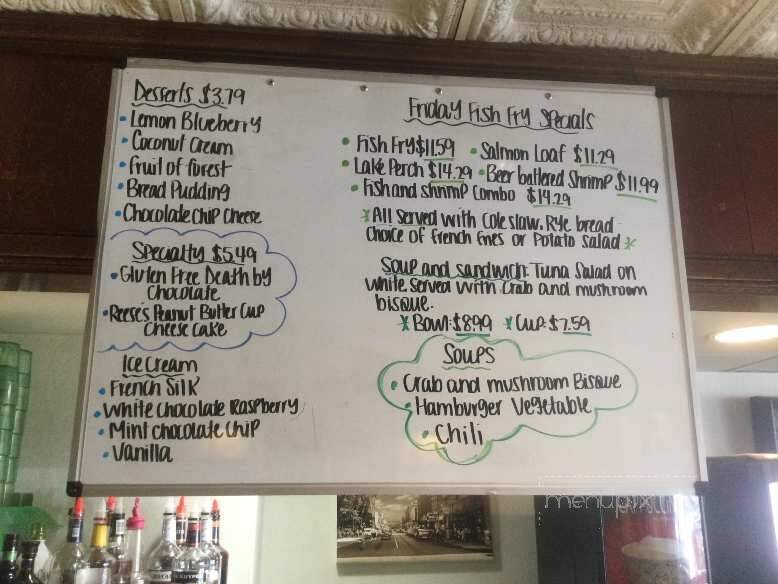 Desserts $3.79
Lemon Blueberry
Coconut Cream
Fruit of forest
Bread Pudding
Chocolate Chip Cheese
Specialty $5.49
Gluten Free Death by
Chocolate
Reese's Peanut Butter Cup
Cheese cake
Ice Cream
French Silk
White Chocolate Raspberry
Mint Chocolate Chip
Vanilla
Friday Fish Fry Specials
Fish Fry $11.59 Salmon Loaf $11.29
Lake Perch $14.29 Beer battered Shrimp $11.99
Fish and shrimp Combo $14.29
*All served with Coleslaw. Rye bread
Choice of French fries or Potato salad*
Soup and sandwich: Tuna Salad on
white served with Crab and mushroom
bisque.
*Bowl: $8.99 *Cup: $7.59
Soups
Crab and mushroom Bisque
Hamburger Vegetable
Chili
menupix